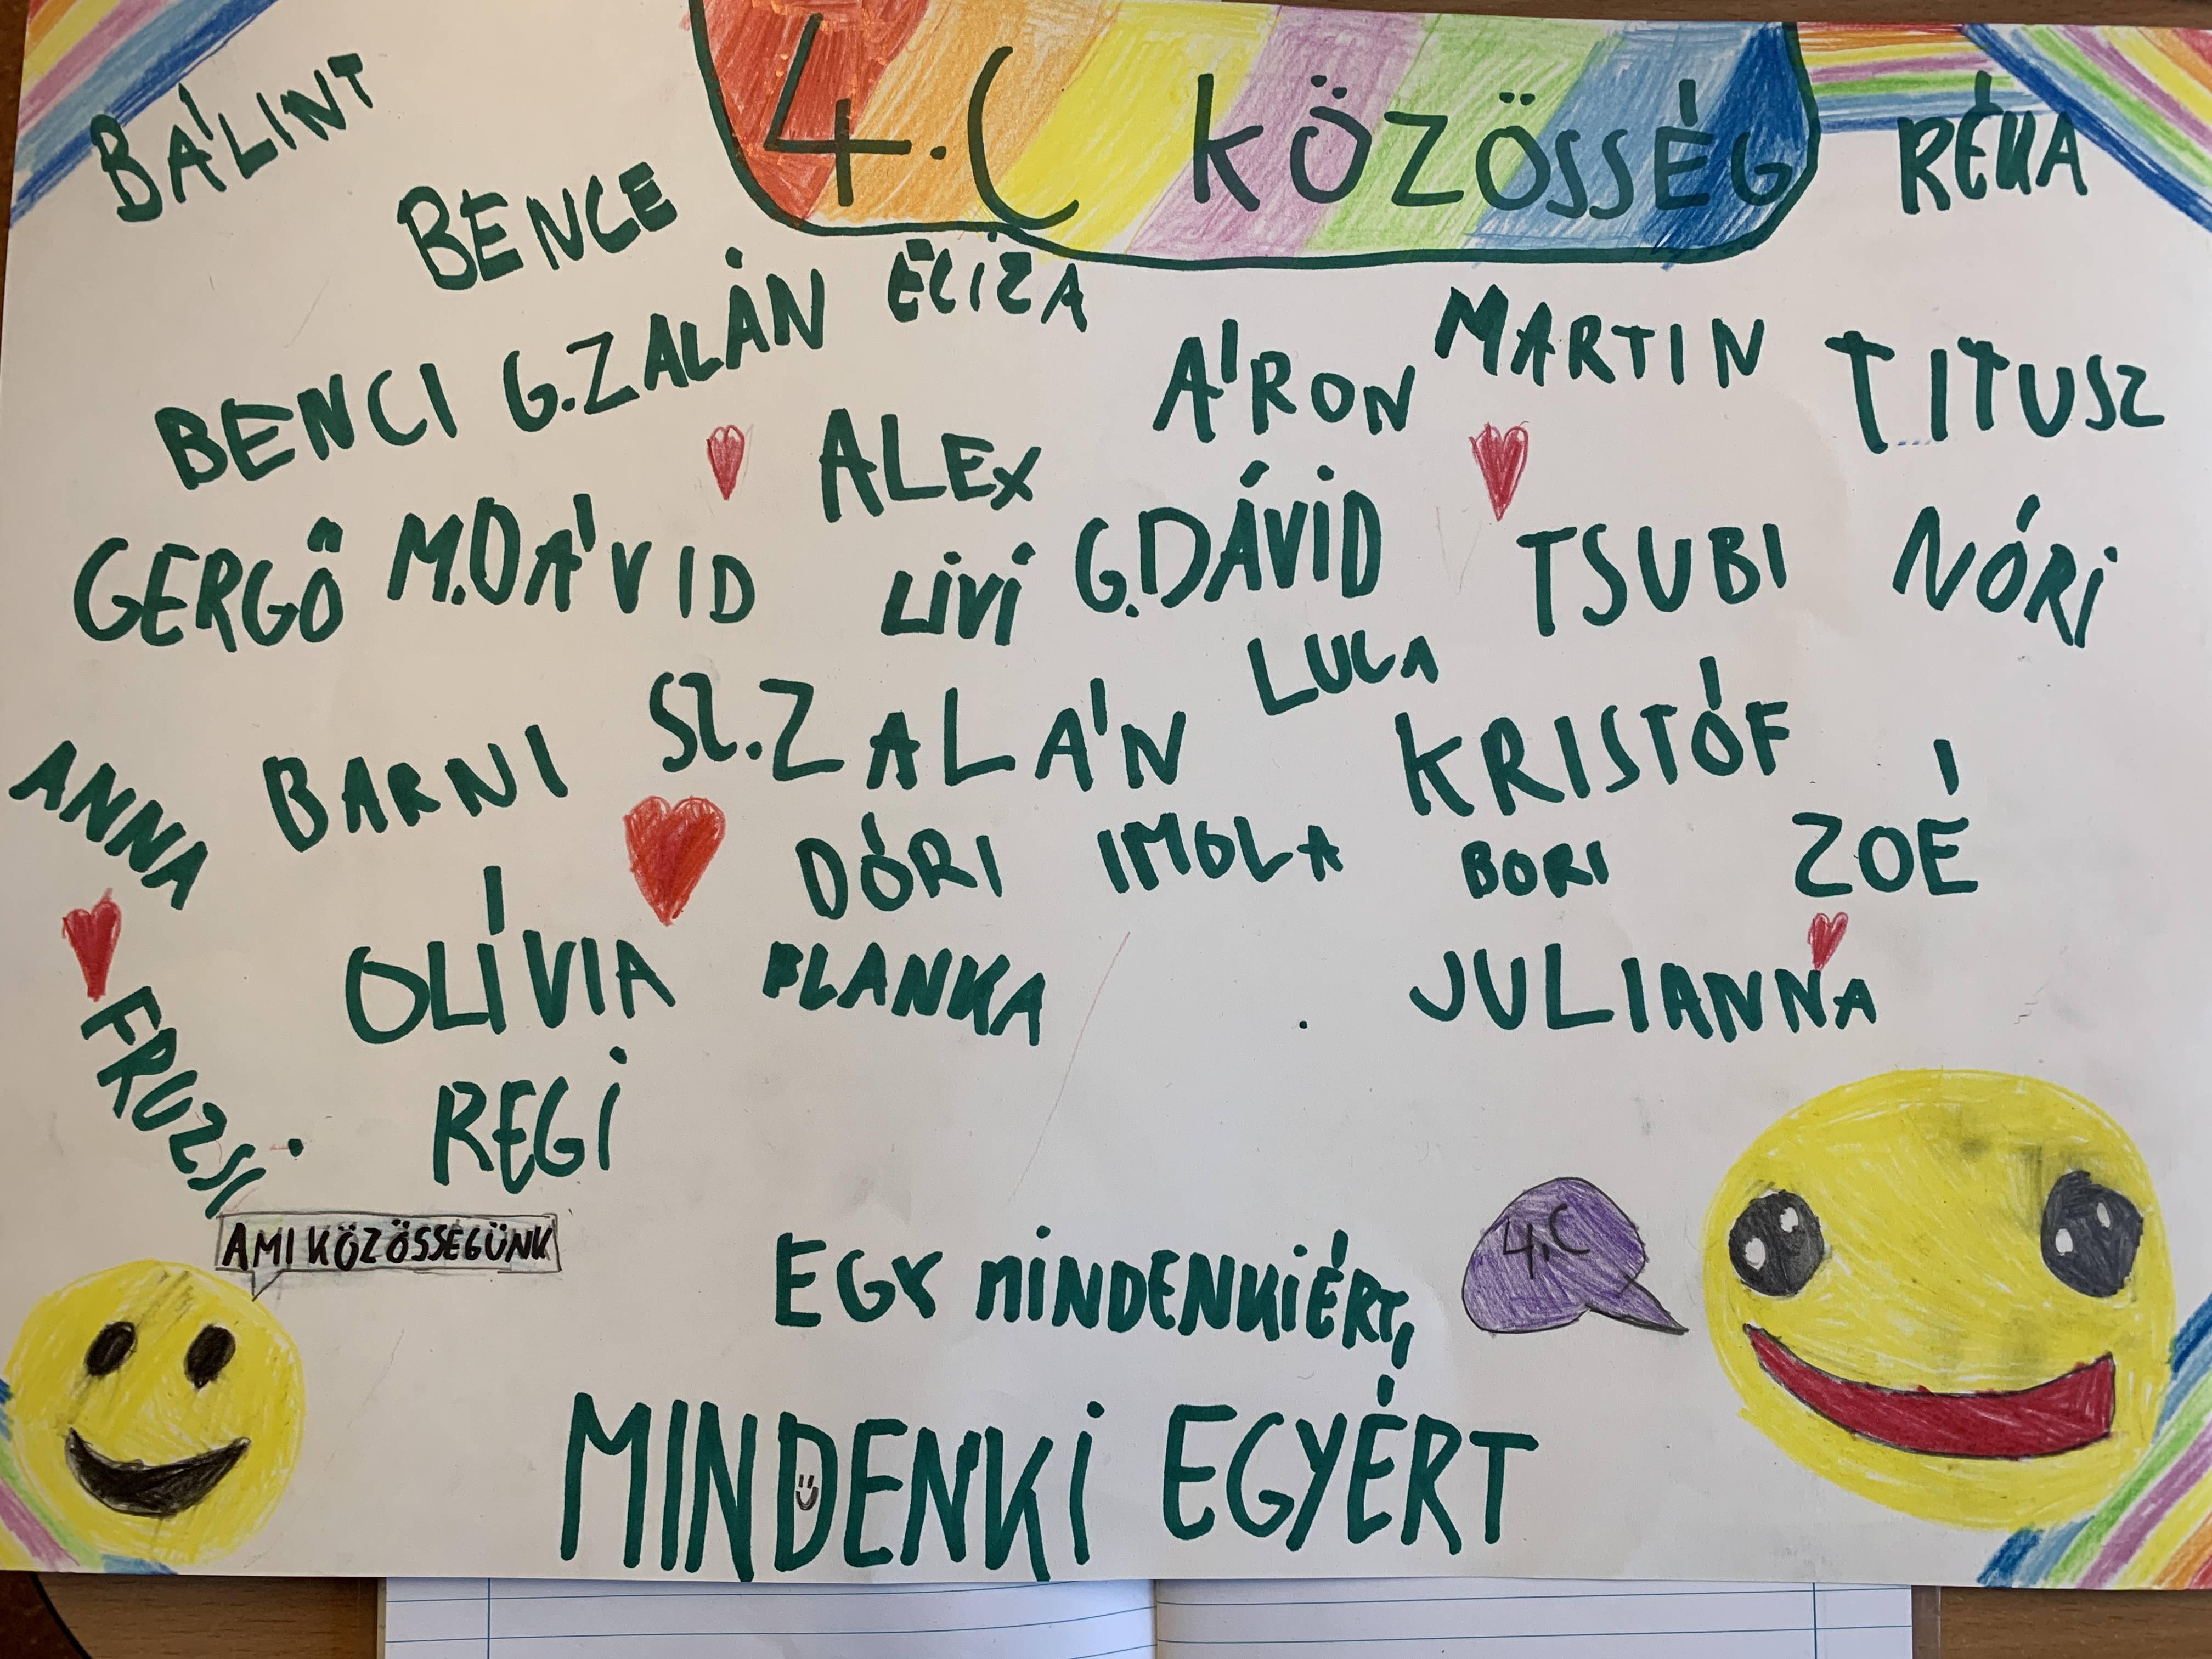 4.C KÖZÖSSÉG
BÁLINT
RÉKA
BENCE
ELIZA
BENCI G.ZALÁN
ÁRON MARTIN TITUSZ
ALEX
GERGŐ M.DÁVID
LIVI G.DÁVID TSUBI NÓRI
LUCA
ANNA BARNI SZ.ZALÁN KRISTÓF
DÓRI IMOLA BORI ZOÉ
OLÍVIA BLANKA JULIANNA
FRUZSI REGI
A MI KÖZÖSSÉGÜNK
4.C
EGY MINDENKIÉRT,
MINDENKI EGYÉRT